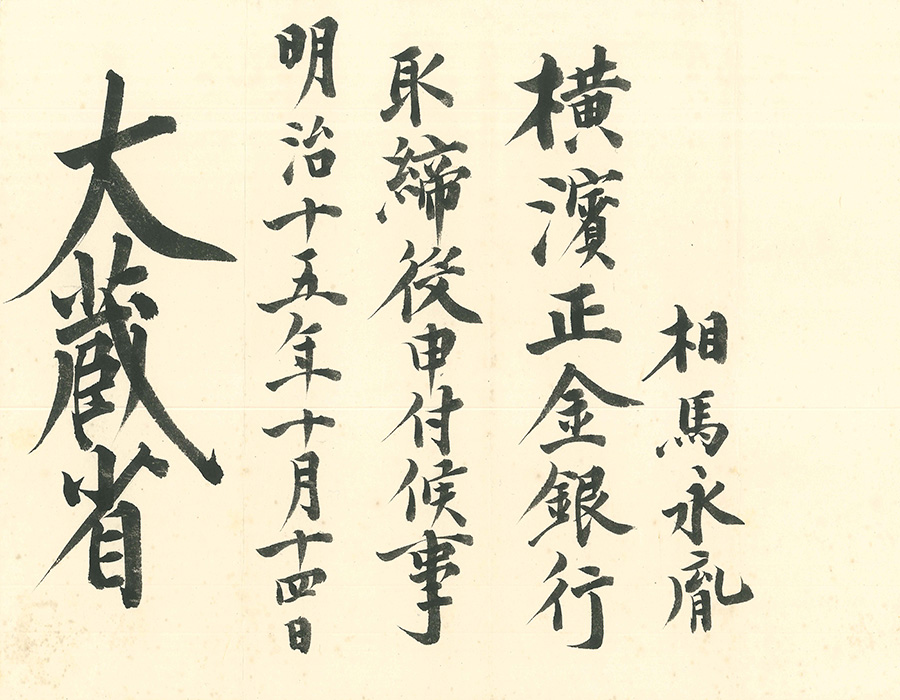 相馬永胤
横濱正金銀行
取締役申付候事
明治十五年十月十四日
大蔵省